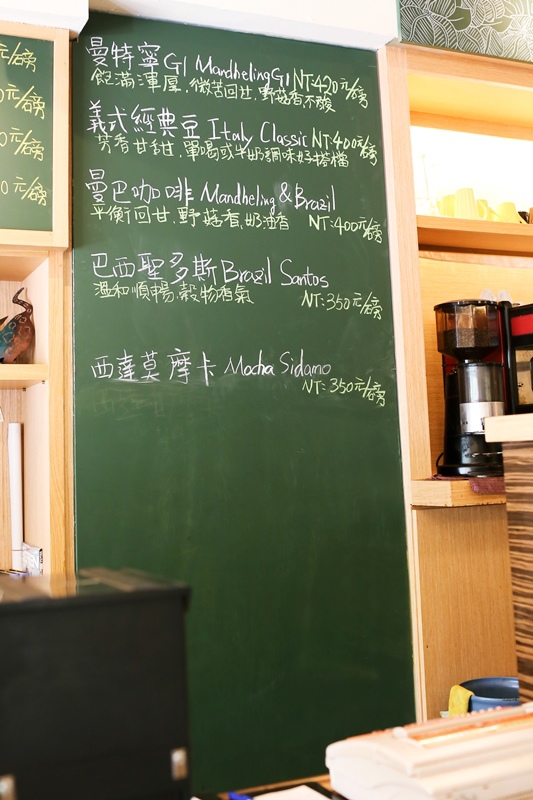 元/磅
0元/磅
元/磅
0元/磅
曼特寧G1 MandhelingG1 NT:420元/磅
飽滿渾厚,微苦回甘,野菇香不酸
義式經典豆 Italy Classic NT:400元/磅
芳香甘甜,單喝或牛奶調味好搭檔
曼巴咖啡 Mandheling & Brazil
平衡回甘,野菇香,奶油香 NT:400元/磅
巴西聖多斯 Brazil Santos
溫和順暢,穀物香氣 NT:350元/磅
西達莫摩卡 Mocha Sidamo
NT:350元/磅